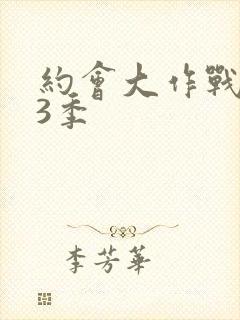 約會大作戰
3季
李芳華